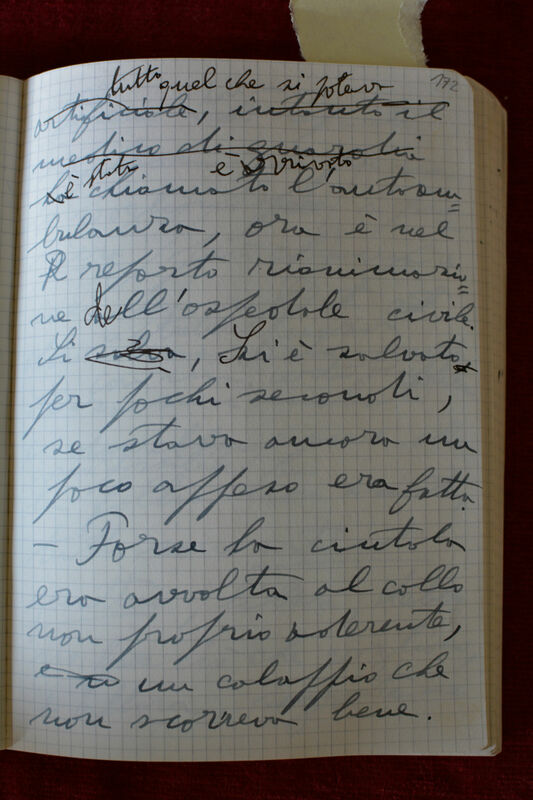 172
tutto quel che si poteva
artificiale, intanto il
medico di guardia
è stata è arrivato
ha chiamato l'autoam=
bulanza, ora è nel
reparto rianimazio=
ne dell'ospedale civile.
Si salva, Si è salvato
per pochi secondi,
se stava ancora un
poco appeso era fatta.
– Forse la cintola
era avvolta al collo
non proprio aderente,
un calappio che
non scorreva bene.